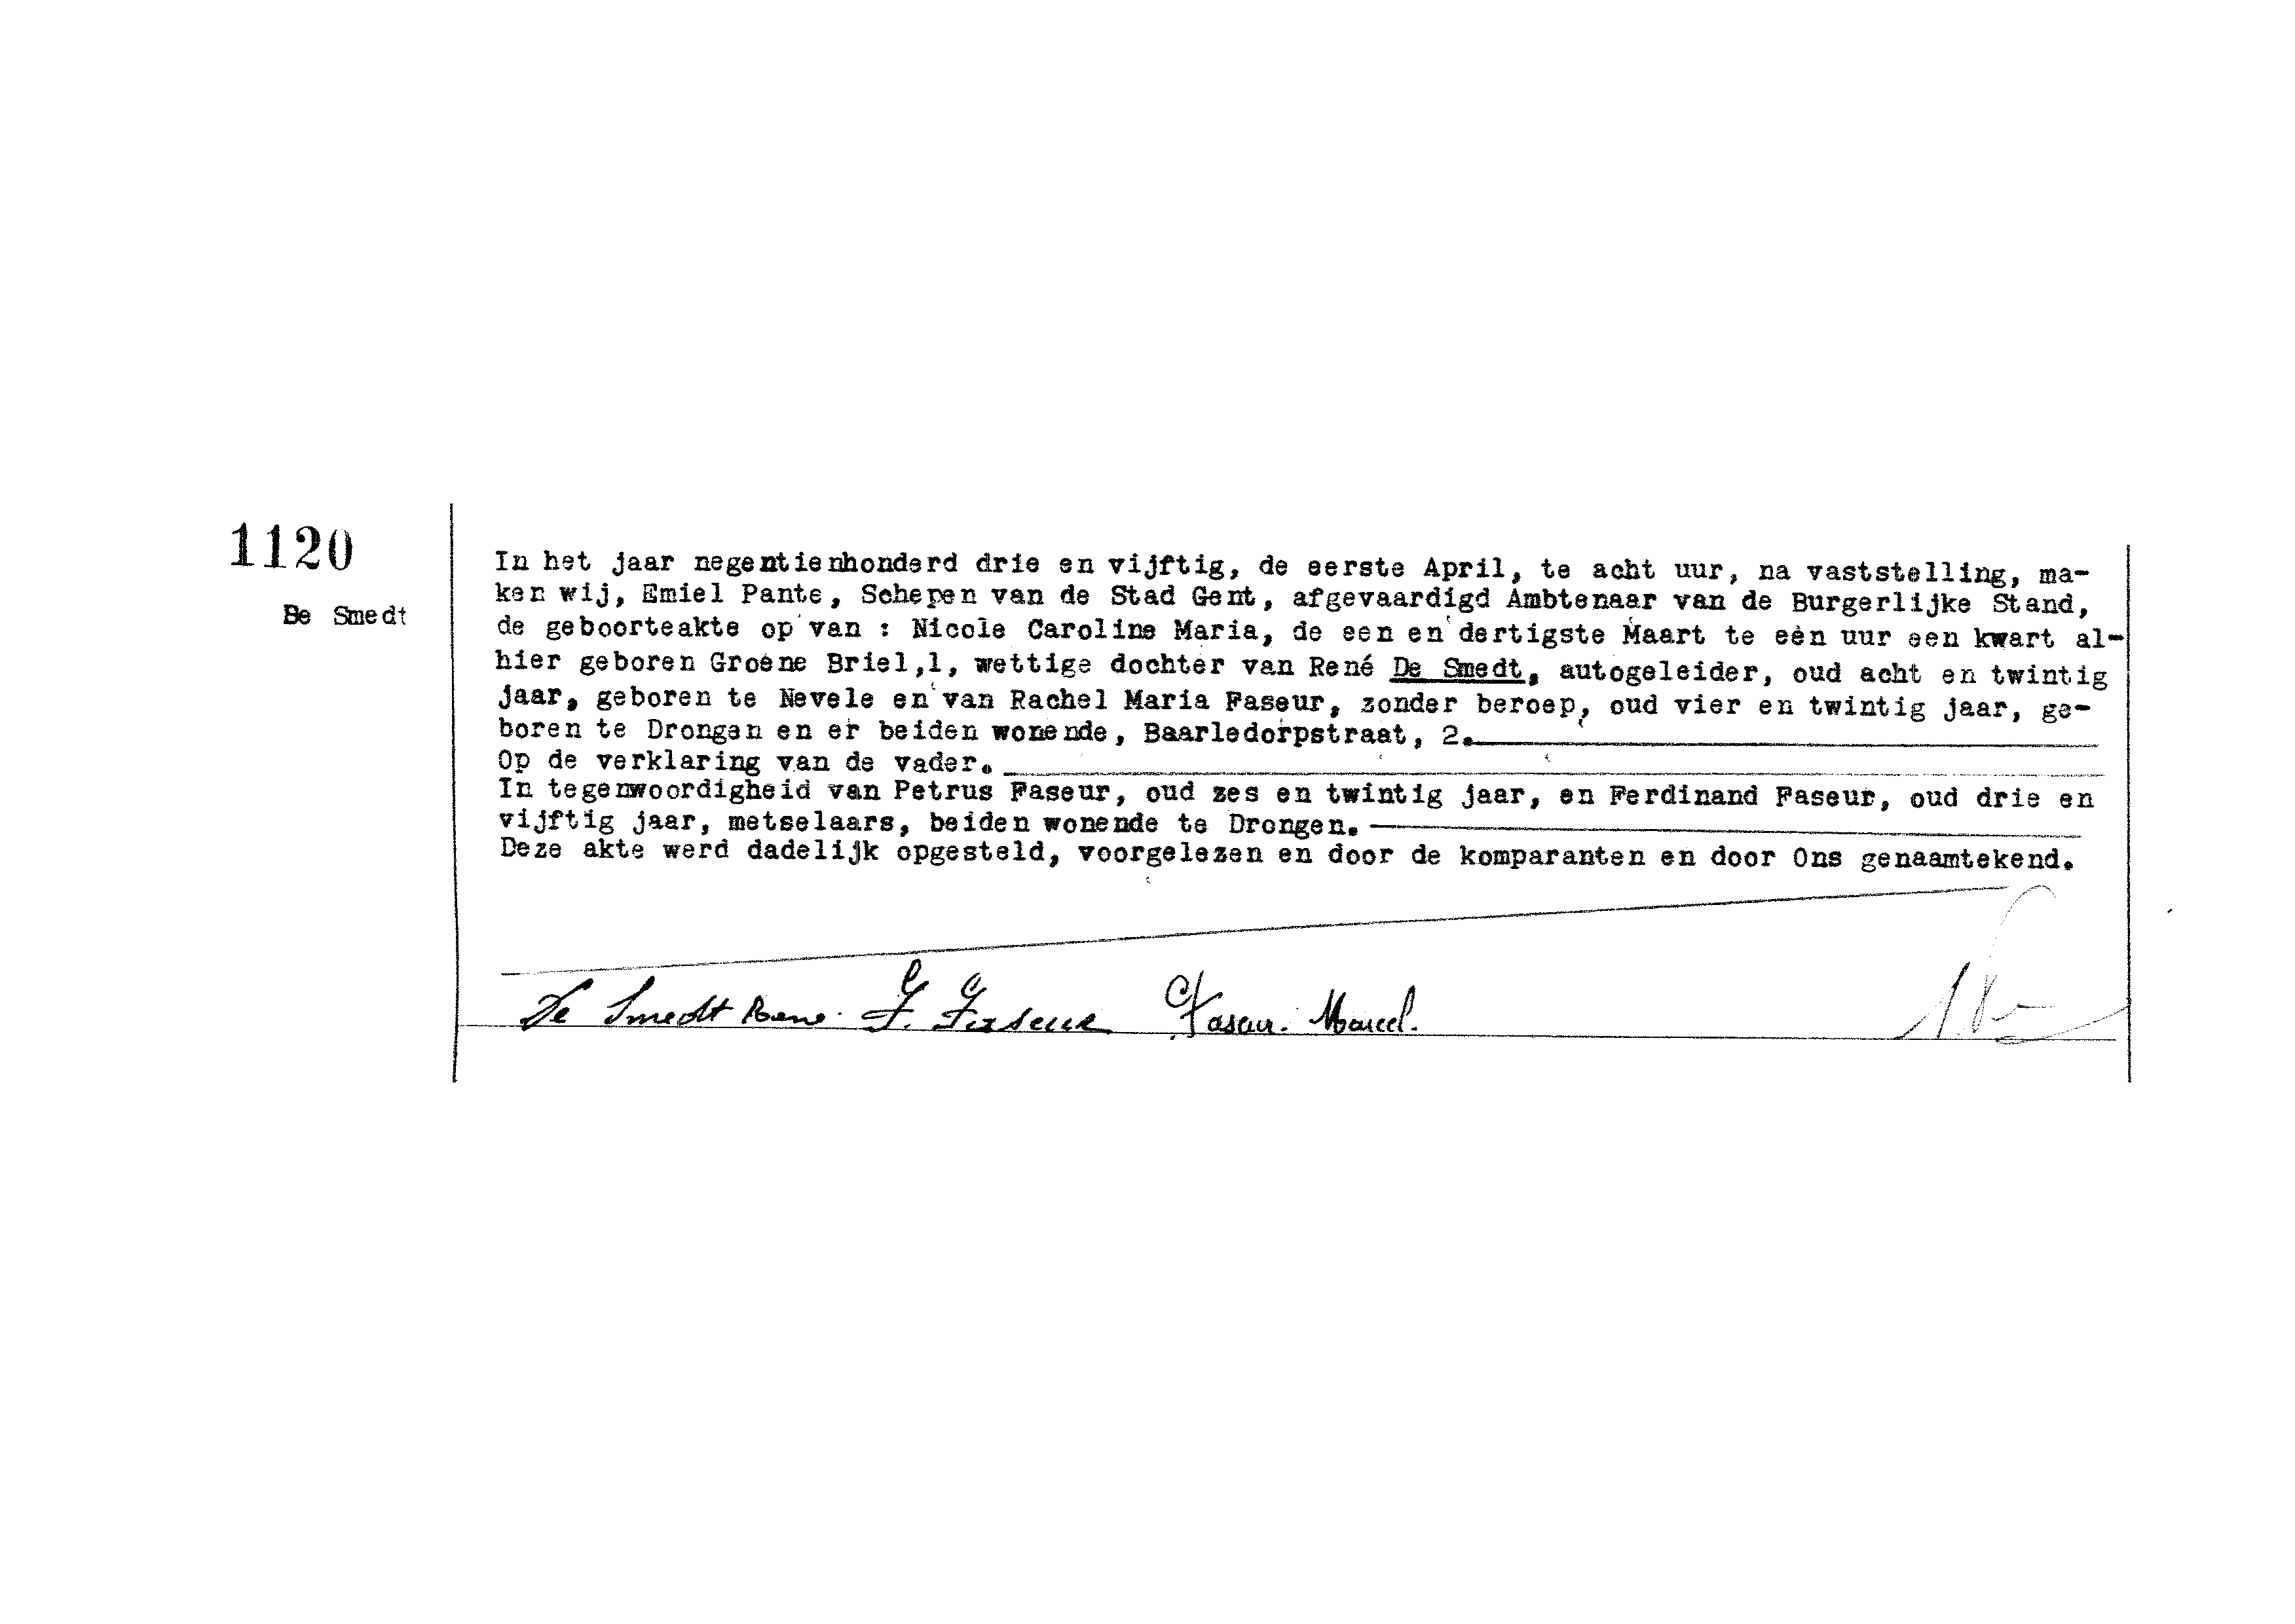 1120
De Smedt
In het jaar negentienhonderd drie en vijftig, de eerste April, te acht uur, na vaststelling, ma-
ken wij, Emiel Pante, Schepen van de Stad Gent, afgevaardigd Ambtenaar van de Burgerlijke Stand,
de geboorteakte op van : Nicole Caroline Maria, de een en dertigste Maart te een uur een kwart al-
hier geboren Groene Briel,1, wettige dochter van René De Smedt, autogeleider, oud acht en twintig
jaar, geboren te Nevele en van Rachel Maria Faseur, zonder beroep, oud vier en twintig jaar, ge-
boren te Drongen en er beiden wonende, Baarledorpstraat, 2.
Op de verklaring van de vader.
In tegenwoordigheid van Petrus Faseur, oud zes en twintig jaar, en Ferdinand Faseur, oud drie en
vijftig jaar, metselaars, beiden wonende te Drongen.
Deze akte werd dadelijk opgesteld, voorgelezen en door de komparanten en door Ons genaamtekend.
De Smedt Rene. F. Faseur Faseur. Marcel.